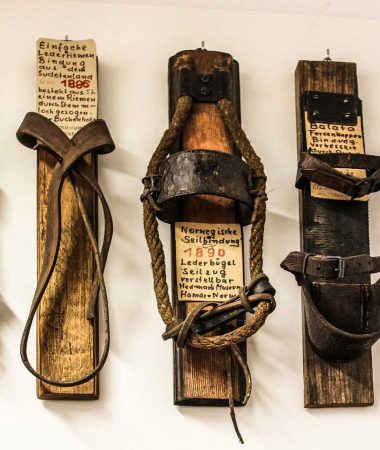 Einfache
Lederriemen
Bindung
aus dem
Sudetenland
1886
besteht aus
einem Riemen
durch Stemm-
loch gezogen.
Buchenholz
Norwegische
Seilbindung
1890
Lederbügel
Seilzug
verstellbar
Hedmark Museum
Hamar-Norw.
Balata
Fersenkappen
Bindung
verbessert
durch